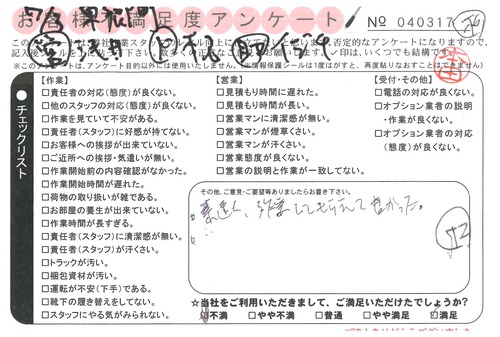 お客様満足度アンケート
No 040317
記入後シールを
【作業】
□責任者の対応(態度)が良くない。
□他のスタッフの対応(態度)が良くない。
□作業を見ていて不安がある。
□責任者(スタッフ)に好感が持てない。
□お客様への挨拶が出来ていない。
□ご近所への挨拶・気遣いが無い。
□作業開始前の内容確認がなかった。
□作業開始時間が遅れた。
□荷物の取り扱いが雑である。
□お部屋の養生が出来ていない。
□作業時間が長すぎる。
□責任者(スタッフ)に清潔感が無い。
□責任者(スタッフ)が汗くさい。
□トラックが汚い。
□梱包資材が汚い。
□運転が不安(下手)である。
□靴下の履き替えをしてない。
□スタッフにやる気がみられない。
【営業】
□見積もり時間に遅れた。
□見積もり時間が長い。
□営業マンに清潔感が無い。
□営業マンが煙草くさい。
□営業マンが汗くさい。
□営業態度が良くない。
□営業の説明と作業が一致してない。
【受付・その他】
□電話の対応が良くない。
□オプション業者の説明
・作業が良くない。
□オプション業者の対応
(態度)が良くない。
●チェックリスト
その他、ご意見・ご要望等ありましたらお書き下さい。
素早く、作業してもらえて良かった。
☆当社をご利用いただきまして、ご満足いただけたでしょうか?
□不満 □やや不満 □普通 □やや満足 □満足